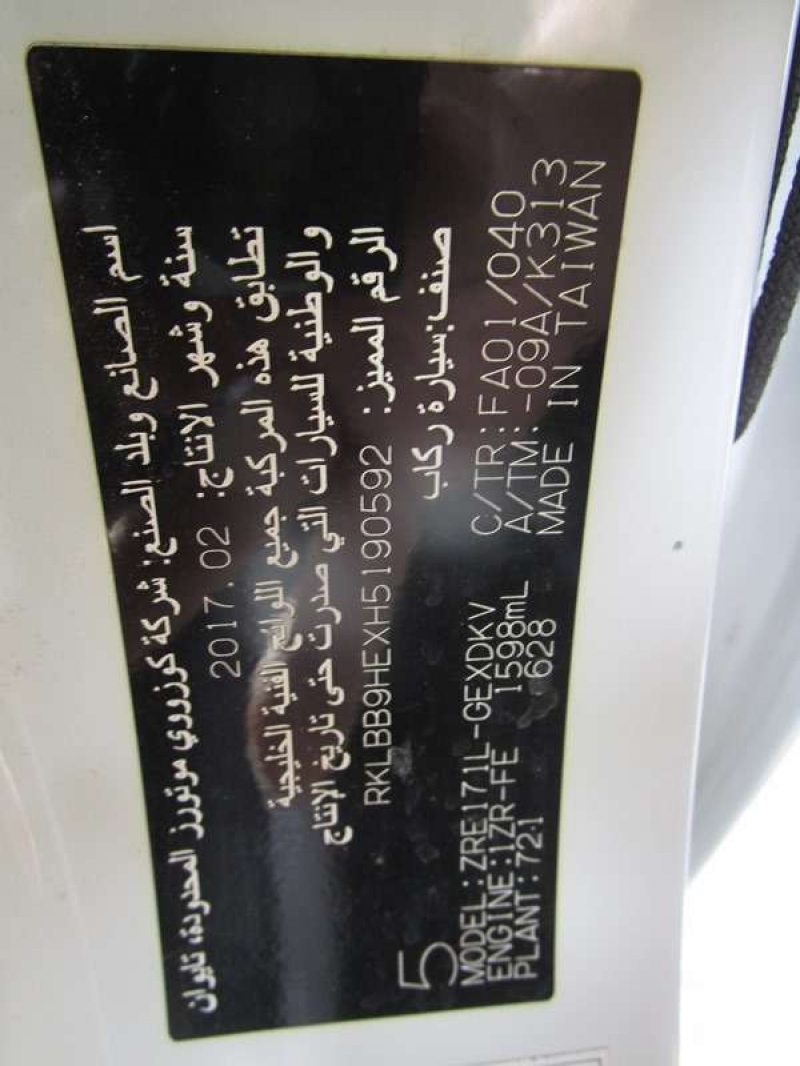 اسم الصانع وبلد الصنع: شركة كوزووي موتورز المحدودة، تايوان
سنة وشهر الانتاج: 2017.02
تطابق هذه المركبة جميع اللوائح الفنية الخليجية
والوطنية للسيارات التي صدرت حتى تاريخ الإنتاج
الرقم المميز: RKLBB9HEXH5190592
صنف:سيارة ركاب
5
MODEL:ZRE171L-GEXDKV C/TR:FA01/040
ENGINE:1ZR-FE 1598mL A/TM:-09A/K313
PLANT:721 628 MADE IN TAIWAN